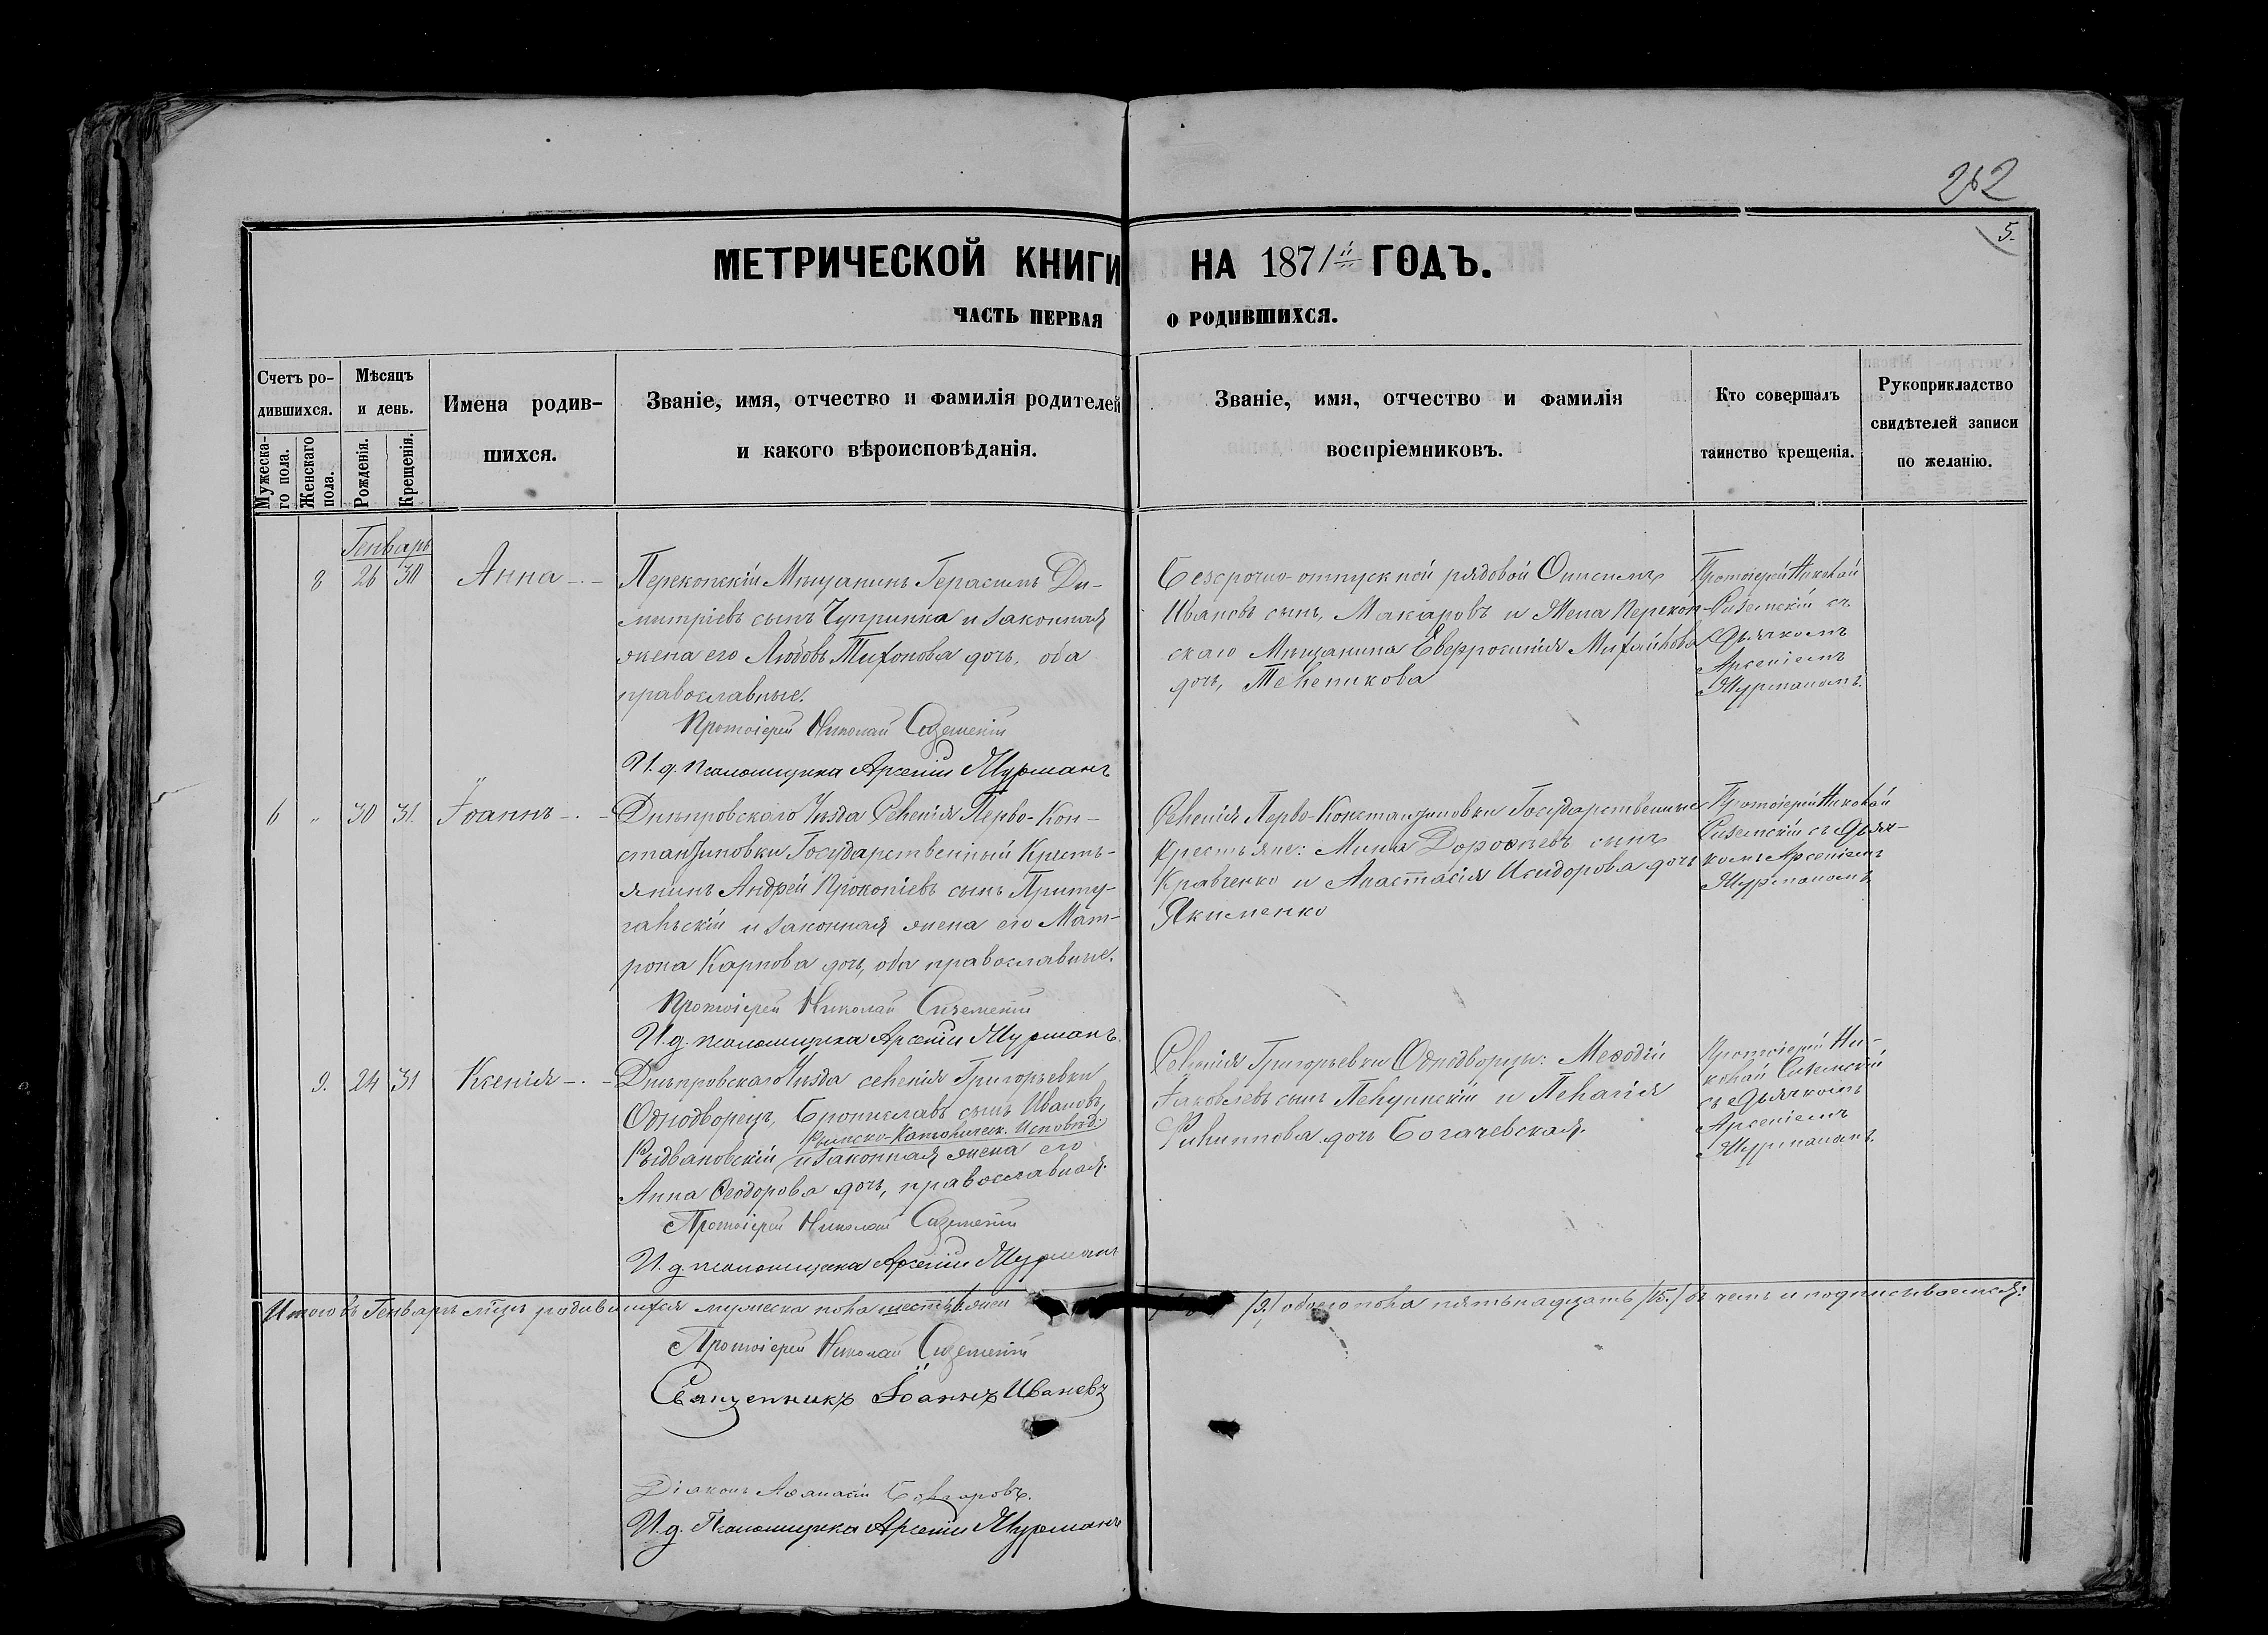 262
5.
МЕТРИЧЕСКОЙ КНИГИ НА 1871й ГОДЪ.
ЧАСТЬ ПЕРВАЯ О РОДИВШИХСЯ.
Счетъ ро-
дившихся.
Мужеска-
го пола.
Женскаго
пола.
Мѣсяцъ
и день.
Рожденія.
Крещенія.
Имена родив-
шихся.
Званіе, имя, отчество и фамилія родителей
и какого вѣроисповѣданія.
Званіе, имя, отчество и фамилія
воспріемниковъ.
Кто совершалъ
таинство крещенія.
Рукоприкладство
свидѣтелей записи
по желанію.
Генварь
8 26 30 Анна
Перекопскій Мѣщанинъ Герасимъ Ди-
митріевъ сынъ Чупринка и законная
жена его Любовь Тихонова дочь, оба
православные.
Протоіерей Николай
И.д. псаломщика Арсеній Журманъ
Безсрочно-отпускной рядовой Онисимъ
Ивановъ сынъ, Макаровъ и Жена Перекоп-
скаго Мѣщанина Евфросинія Михайлова
дочь, Теленикова
Протоіерей Николай
съ
Дьячкомъ
Арсеніемъ
Журманомъ.
6 " 30 31. Іоаннъ
Днѣпровскаго Уѣзда Селенія Перво-Кон-
стантиновки Государственный Кресть-
янинъ Андрей Прокопіевъ сынъ Приту-
гальскій и законная жена его Мат-
рона Карпова дочь, оба православные.
Протоіерей Николай
И.д. псаломщика Арсеній Журманъ.
Селенія Перво-Константиновки Государственные
Крестьяне: Мина Дороѳеевъ сынъ
Кравченко и Анастасія Исидорова дочь
Якименко
Протоіерей Николай
съ Дьяч-
комъ Арсеніемъ
Журманомъ
9. 24 31 Ксенія
Днѣпровскаго Уѣзда селенія Григорьевки
Однодворецъ, Брониславъ сынъ Ивановъ,
Римско-Католическ. Исповѣд:
Рыдвановскій и законная жена его
Анна Ѳеодорова дочь, православная.
Протоіерей Николай
И.д. псаломщика Арсеній Журманъ
Селенія Григорьевки Однодворцы: Меѳодій
Іаковлевъ сынъ и Пелагія
Филиппова дочь Богачевская.
Протоіерей Ни-
колай
съ Дьячкомъ
Арсеніемъ
Журманомъ.
Итого въ Генварѣ мцѣ родившихся мужеска пола шесть, женск /9./ обоего пола пятьнадцать /15./ въ чемъ и подписываемся:
Протоіерей Николай
Священникъ Іоаннъ Ивановъ
Діаконъ Аѳанасій
И.д. Псаломщика Арсеній Журманъ